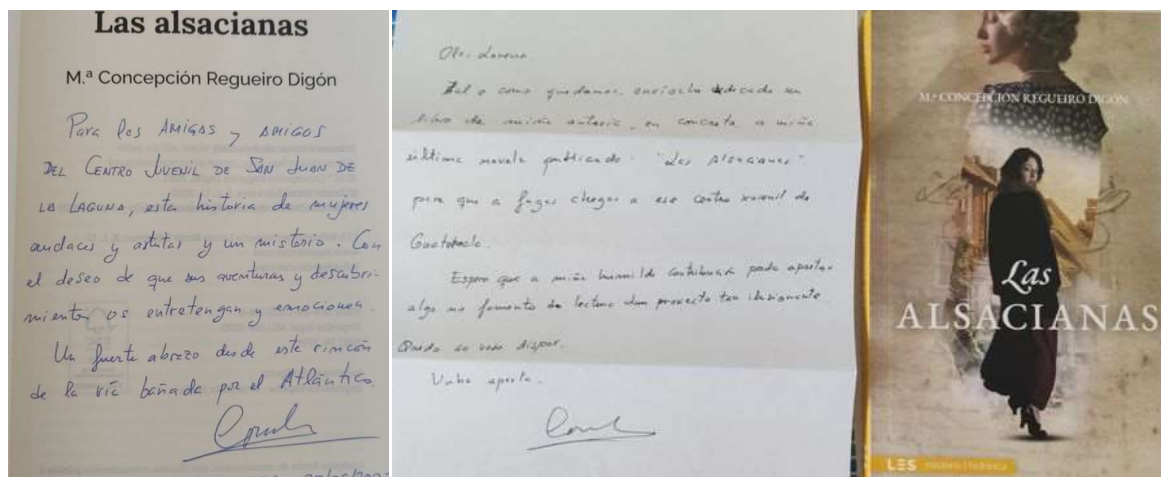 Las alsacianas
M.ª Concepción Regueiro Digón
Para las AMIGAS y AMIGOS
DEL CENTRO JUVENIL DE SAN JUAN DE
LA LAGUNA, esta historia de mujeres
audaces y astutas y un misterio. Con
el deseo de que sus aventuras y descubri-
mientos os entretengan y emocionen.
Un fuerte abrazo desde este rincón
de la ría bañada por el Atlántico.
Ola, Lorena
Tal e como quedamos, envíoche dedicado un
libro da miña autoría, en concreto a miña
última novela publicada: "Las Alsacianas"
para que a fagas chegar a ese centro xuvenil de
Guatemala.
Espero que a miña humilde contribución poda aportar
algo no fomento da lectura dun proxecto tan ilusionante.
Quedo ao voso dispor.
Unha aperta.
M.ª CONCEPCIÓN REGUEIRO DIGÓN
Las
ALSACIANAS
LES misterio | histórica